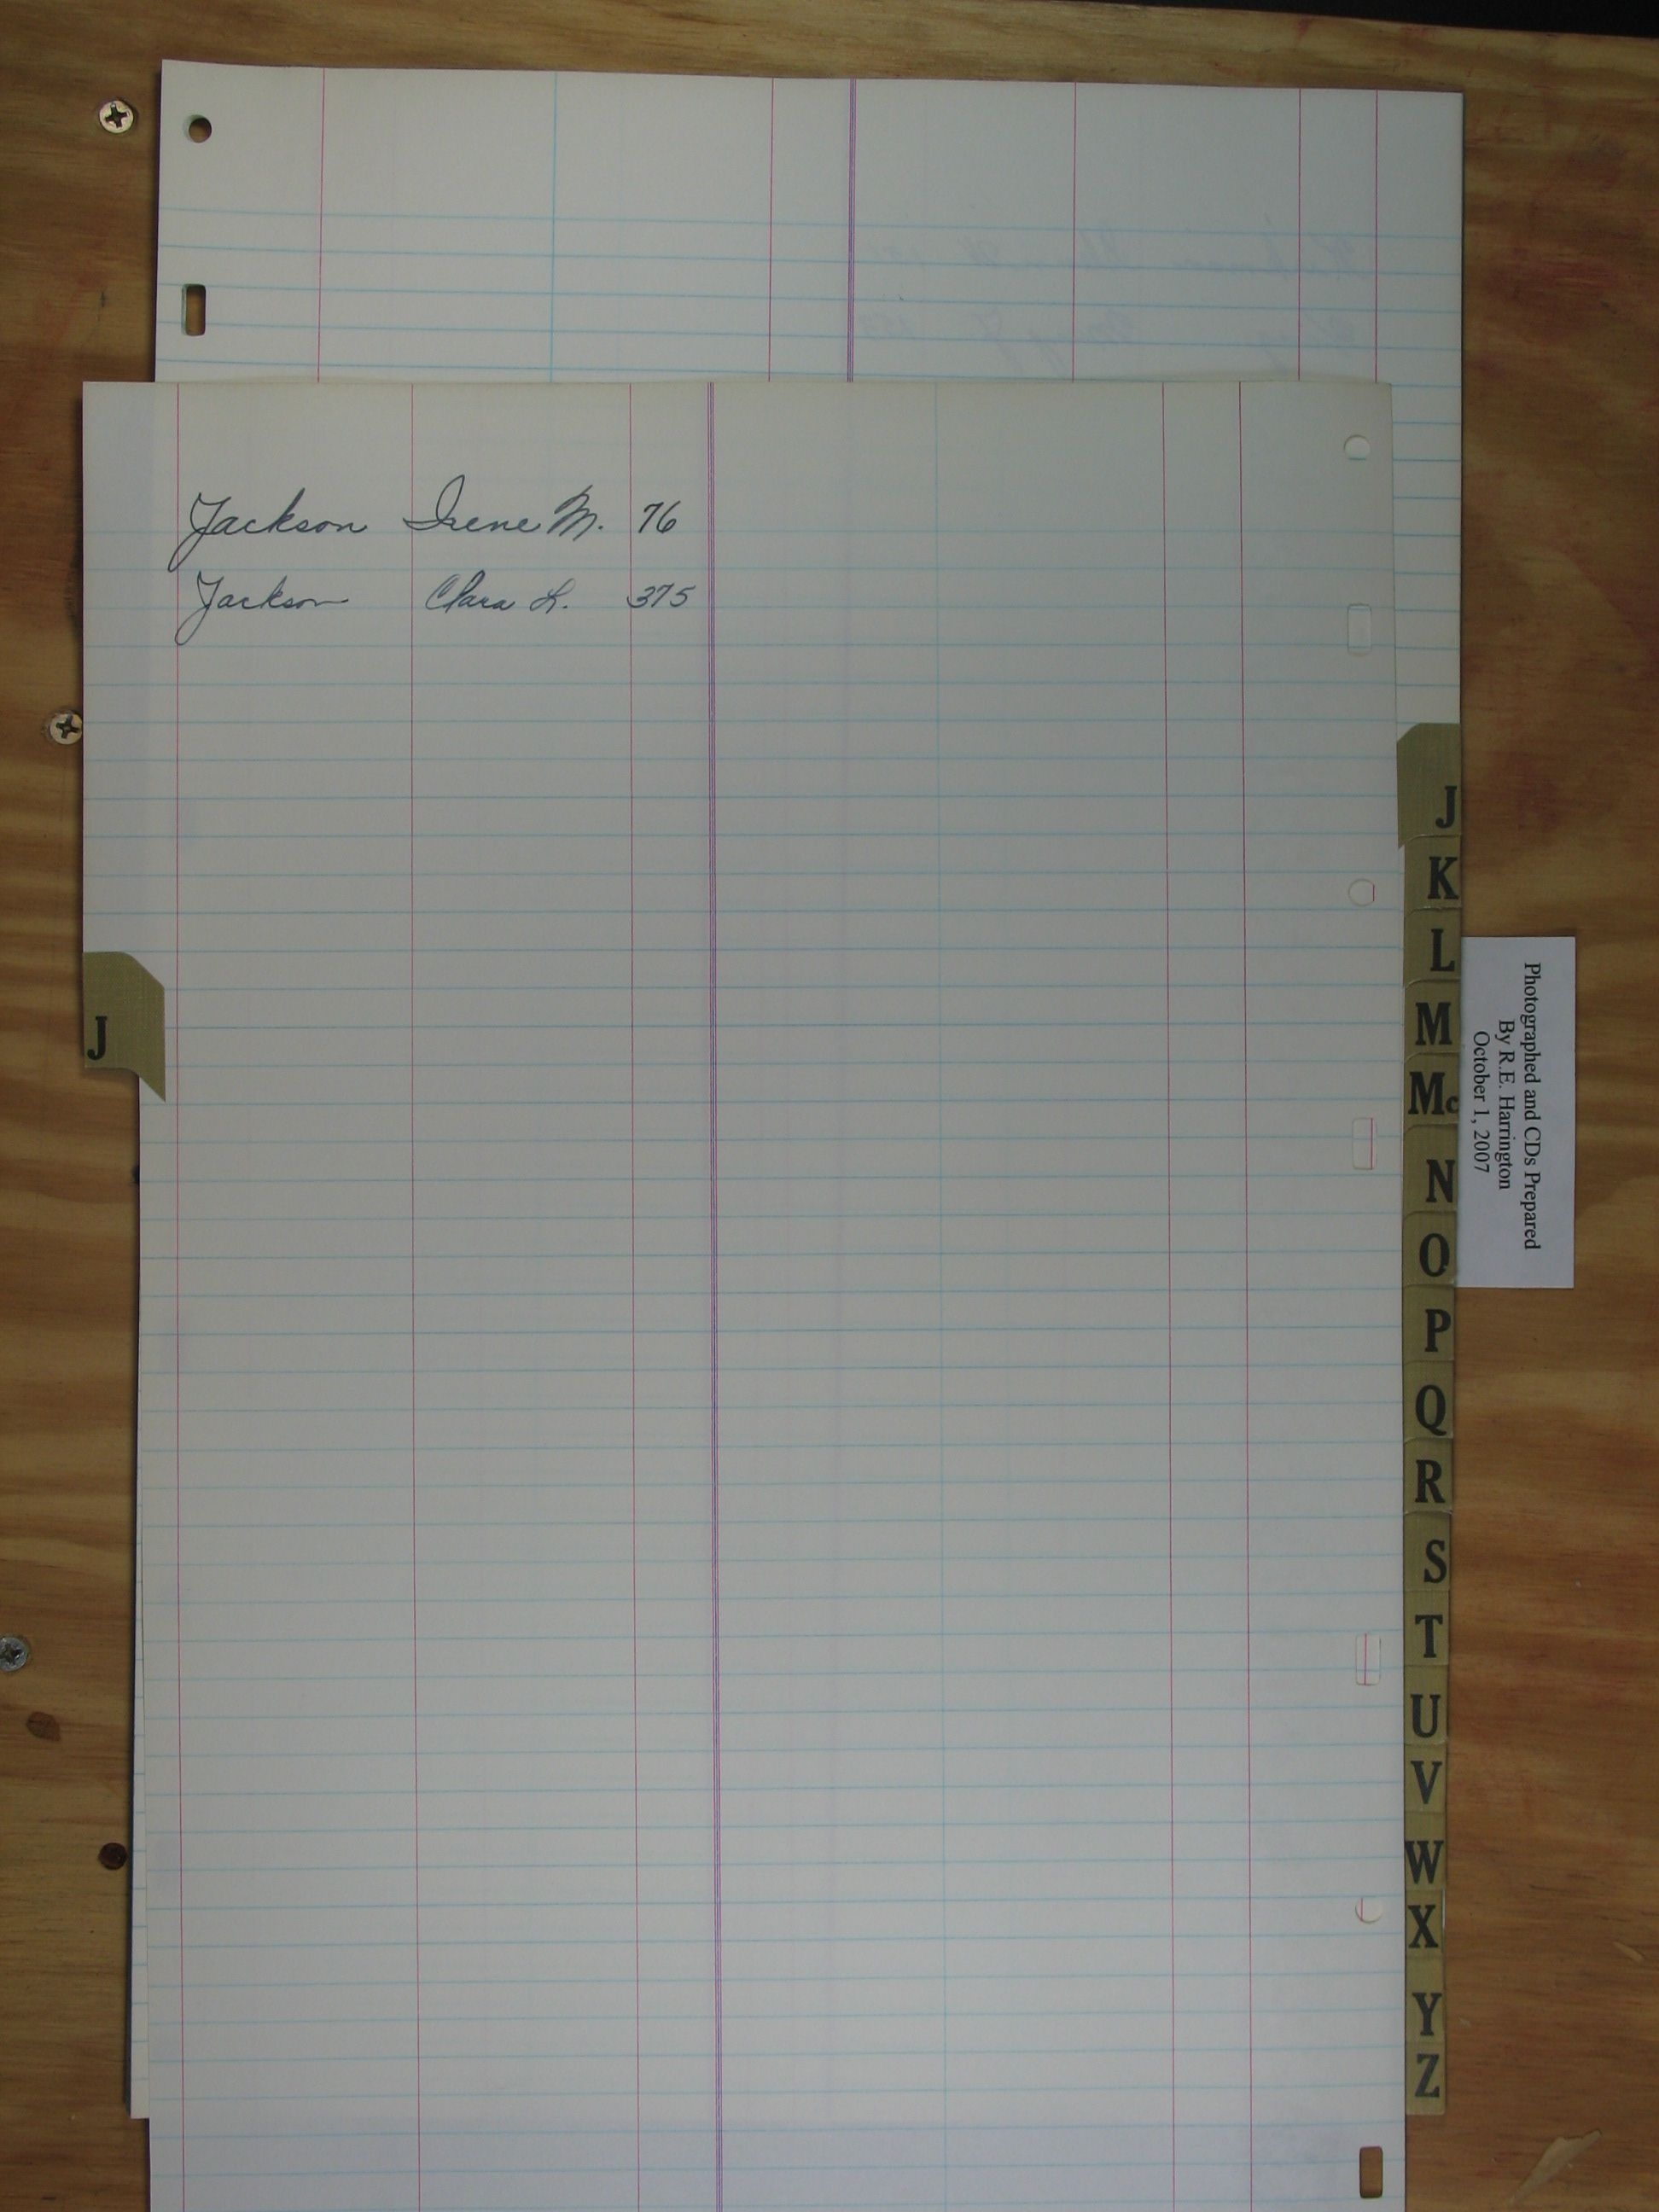 Jackson Irene M. 76
Jackson Clara L. 375
J
J
K
L
M
Mc
N
O
P
Q
R
S
T
U
V
W
X
Y
Z
Photographed and CDs Prepared
By R.E. Harrington
October 1, 2007